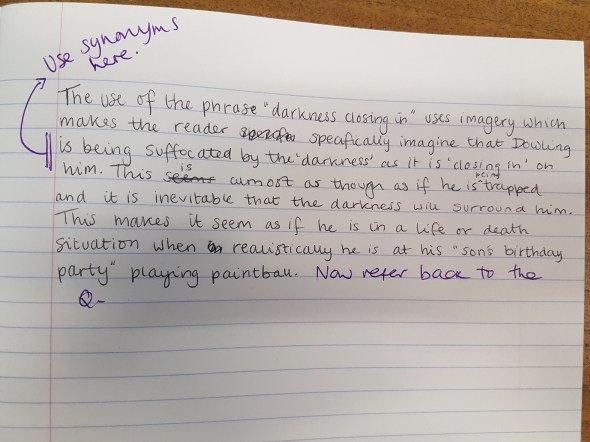 Use synonyms
here.
The use of the phrase "darkness closing in" uses imagery which
makes the reader specafically imagine that Dowling
is being suffocated by the 'darkness' as it is 'closing in' on
him. This seems is almost as though as if he is being trapped
and it is inevitable that the darkness will surround him.
This makes it seem as if he is in a life or death
situation when realistically he is at his "son's birthday
party" playing paintball. Now refer back to the
Q-